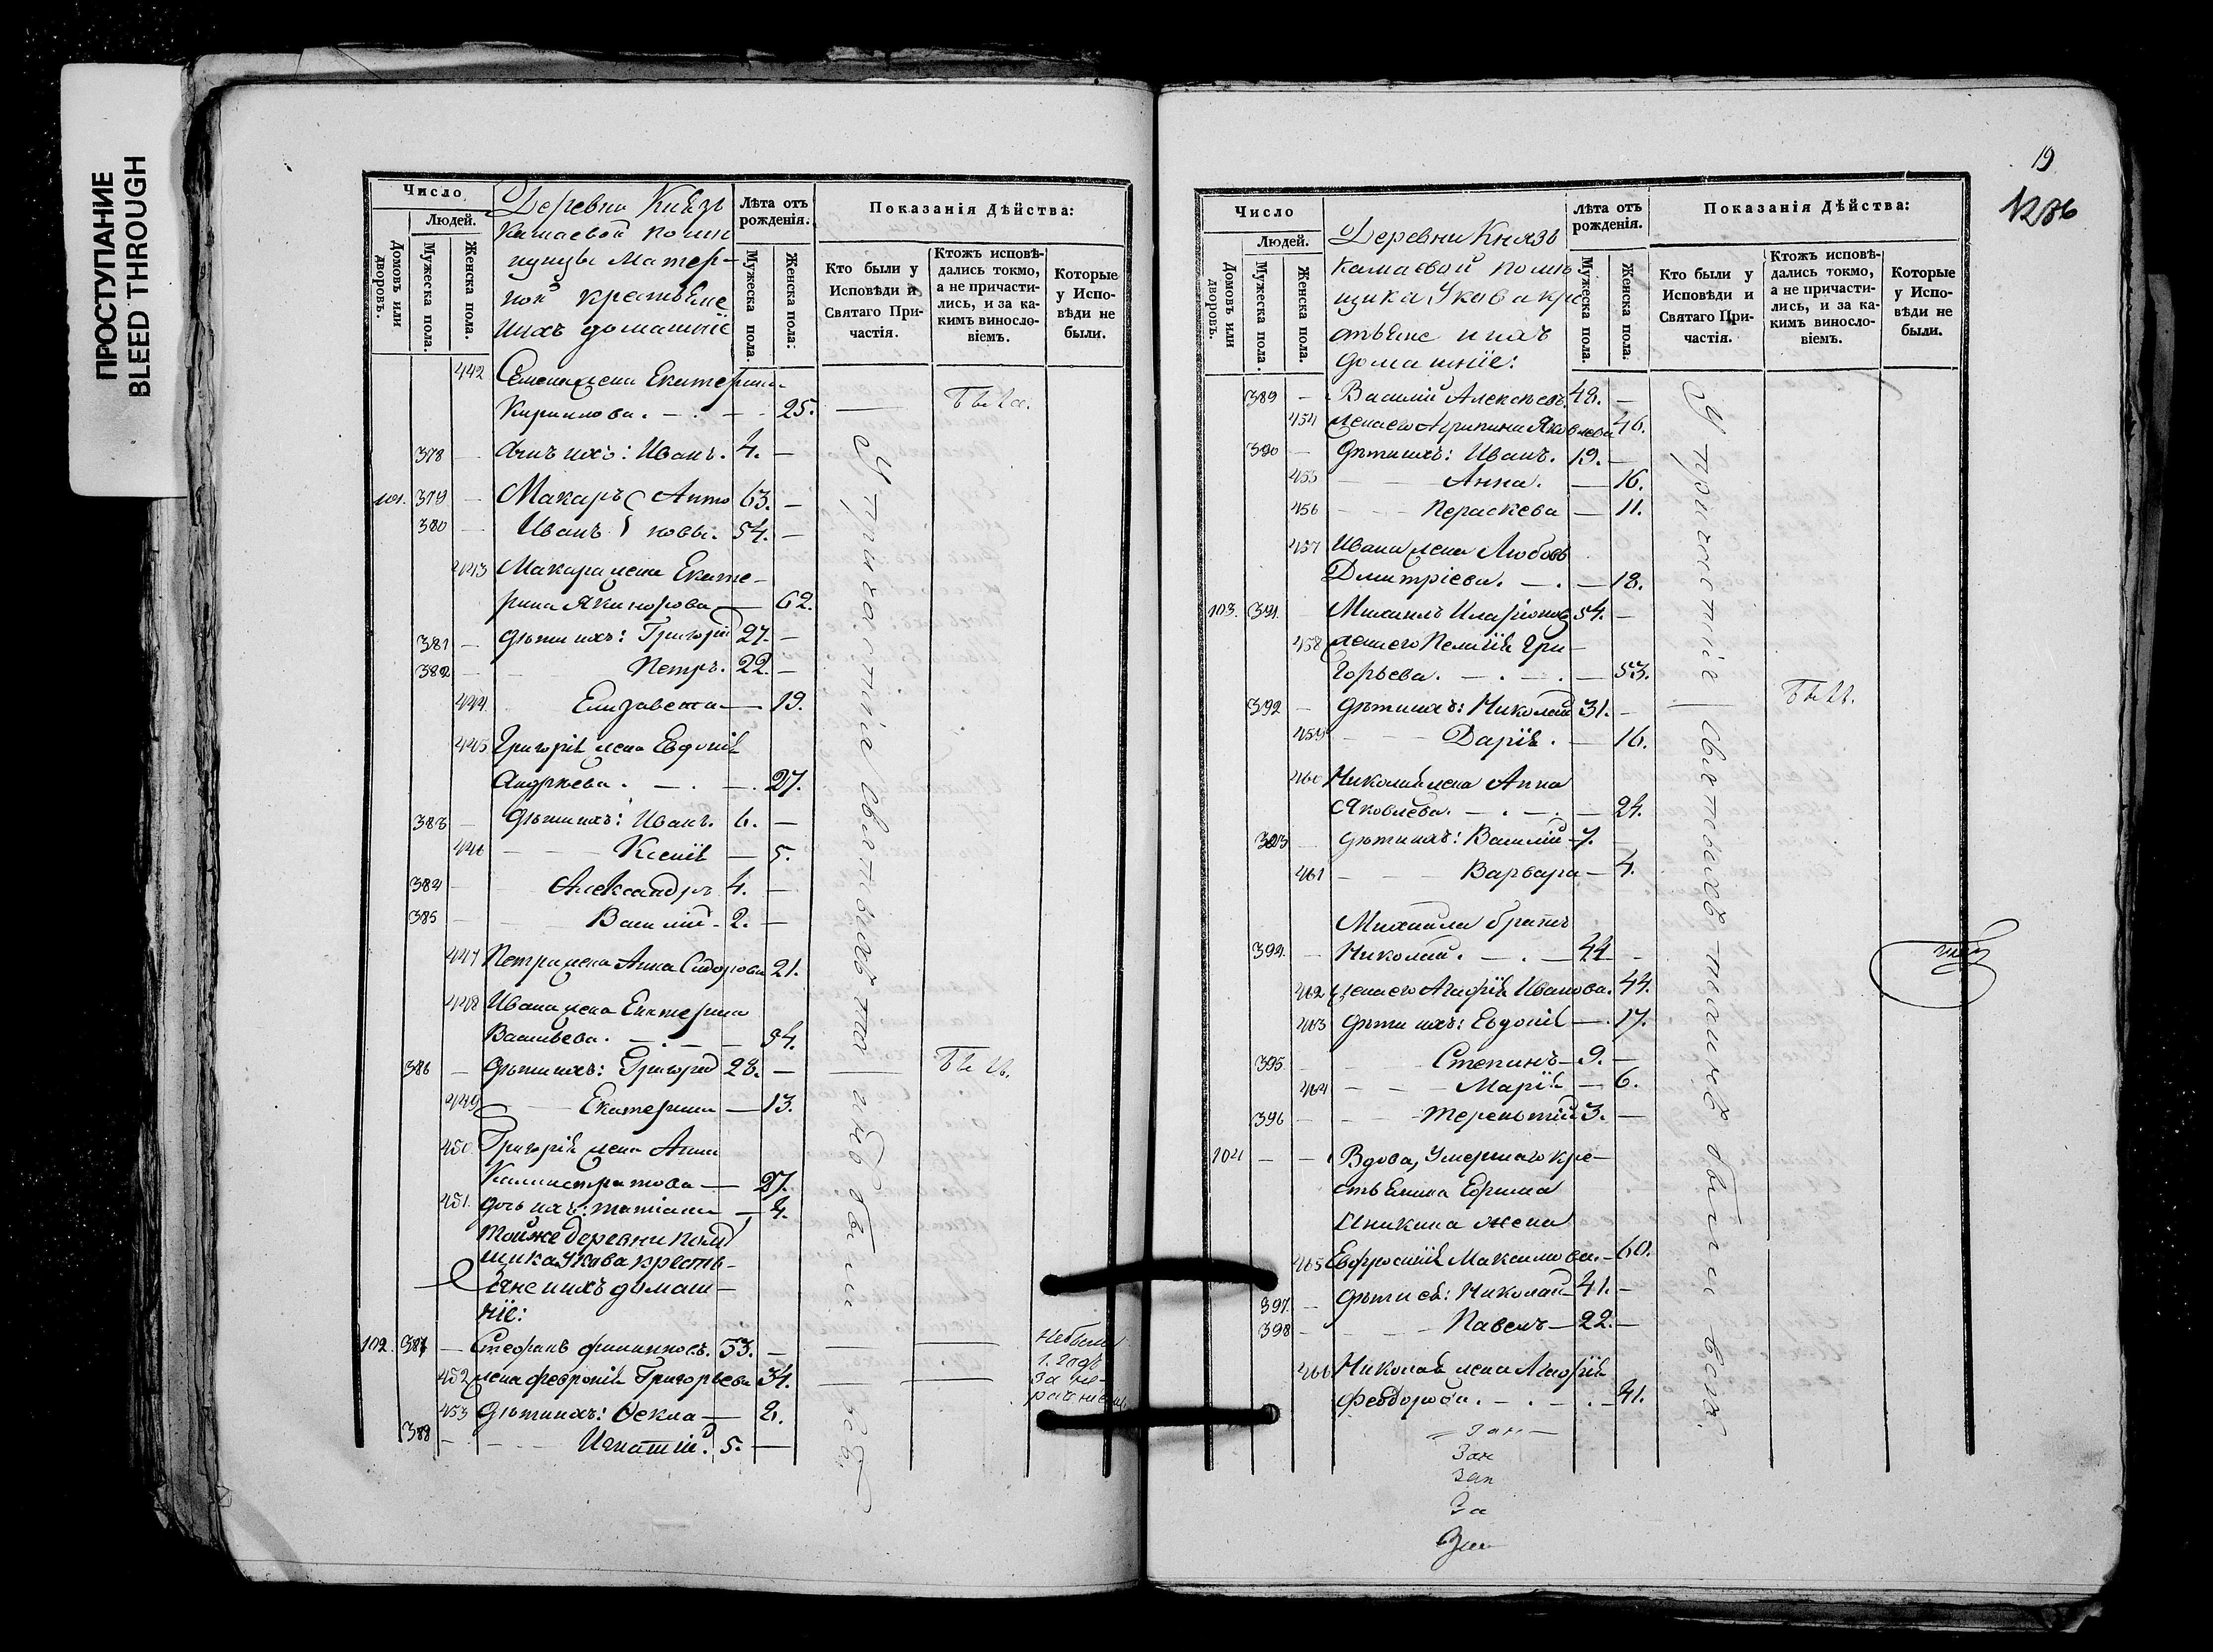 ПРОСТУПАНИЕ
BLEED THROUGH
Число
Людей.
Домовъ или дворовъ.
Мужеска пола.
Женска пола.
Деревни Князь
камаевой поме
щицы Матер-
ной крестьяне
ихъ домашніе
Лѣта отъ рожденія.
Мужеска пола.
Женска пола.
Показанія Дѣйства:
Кто были у Исповѣди и Святаго Причастія.
Ктожъ исповѣдались токмо, а не причастились, и за какимъ винословіемъ.
Которые у Исповѣди не были.
442 Семена жена Екатерина
Кирилова. — 25. — была.
378 — сынъ ихъ: Иванъ. 4. —
101. 379 — Макаръ Анто 63. —
380 — Иванъ новы. 54. —
443 Макара жена Екате-
рина — 62.
381 — Дѣти ихъ: Григорій 27. —
382 — Петръ. 22. —
444 Елизавета — 19.
445 Григорія жена Евдокія
Андреева. — 27.
383 — Дѣти ихъ: Иванъ. 6. —
446 Ксенія — 5.
384 — Александръ 4. —
385 — Василій. 2. —
447 Петра жена Анна Сидорова 21.
448 Ивана жена Екатерина
Васильева. — 54.
386 — Дѣти ихъ: Григорій 28. —
449 Екатерина — 13.
450 Григорія жена Анна
Каллистратова — 27.
451. дочь ихъ: Татіана — 4.
Той же деревни помѣ
щика Укова кресть-
яне и ихъ домаш-
ніе:
102. 387 — Стефанъ Филипповъ. 53. — не были
452 жена Февронія Григорьева 34. — 1. годъ
за не-
453 Дѣти ихъ: Ѳекла — 2.
388 — Игнатій. 5. —
У причастія святыхъ таинъ были всѣ
19
1286
Число
Людей.
Домовъ или дворовъ.
Мужеска пола
Женска пола.
Деревни Князь
камаевой помѣ
щика Укова кре
стьяне и ихъ
домашніе:
Лѣта отъ рожденія.
Мужеска пола.
Женска пола.
Показанія Дѣйства:
Кто были у Исповѣди и Святаго Причастія.
Ктожъ исповѣдались токмо, а не причастились, и за какимъ винословіемъ.
Которые у Исповѣди не были.
389 — Василій Алексѣевъ. 48. —
454 жена его Агрипина Яковлева 46.
390 — Дѣти ихъ: Иванъ. 19. —
455 Анна. — 16.
456 Параскева — 11.
457 Ивана жена Любовь
Дмитріева. — 18.
103. 391 Михаилъ Иларіоновъ 54. —
458 жена его Пелагія Гри-
горьева. — 53.
392 — Дѣти ихъ: Николай 31. —
459 Дарія. — 16.
460 Николая жена Анна
Яковлева. — 24.
393 — Дѣти ихъ: Василій — 7.
461 Варвара — 4.
Михаила братъ
394. — Николай. — 44 —
462 жена его Агафія Иванова. 44.
463 Дѣти ихъ: Евдокія — 17.
395 Степанъ — 9. —
464 Марія — 6.
396 — Терентій 3. —
104 — — Вдова, Умершаго кре-
стьянина Ефима
Аникина жена
465 Евфросинія Максимова. — 60.
397 — Дѣти ея: Николай 41. —
398 Павелъ — 22. —
466 Николая жена Агафія
Ѳеодорова. — 41.
Зан
Зан
Зап
За
У причастія святыхъ таинъ были всѣ.